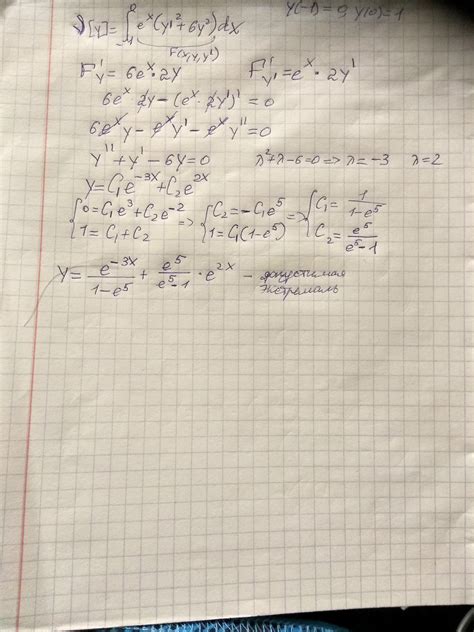 y(-1) = 0, y(0) = 1
J[y] = ∫₋₁⁰ eˣ(y'² + 6y²)dx
F(x,y,y')
F'y = 6eˣ · 2y F'y' = eˣ · 2y'
6eˣ · 2y - (eˣ · 2y')' = 0
6eˣy - eˣy' - eˣy'' = 0
y'' + y' - 6y = 0 λ² + λ - 6 = 0 ⇒ λ = -3 λ = 2
y = C₁e⁻³ˣ + C₂e²ˣ
{0 = C₁e³ + C₂e⁻² ⇒ {C₂ = -C₁e⁵ ⇒ {C₁ = 1/(1-e⁵)
{1 = C₁ + C₂ {1 = C₁(1-e⁵) {C₂ = e⁵/(e⁵-1)
y = e⁻³ˣ/(1-e⁵) + e⁵/(e⁵-1) · e²ˣ - допустимая
экстремаль